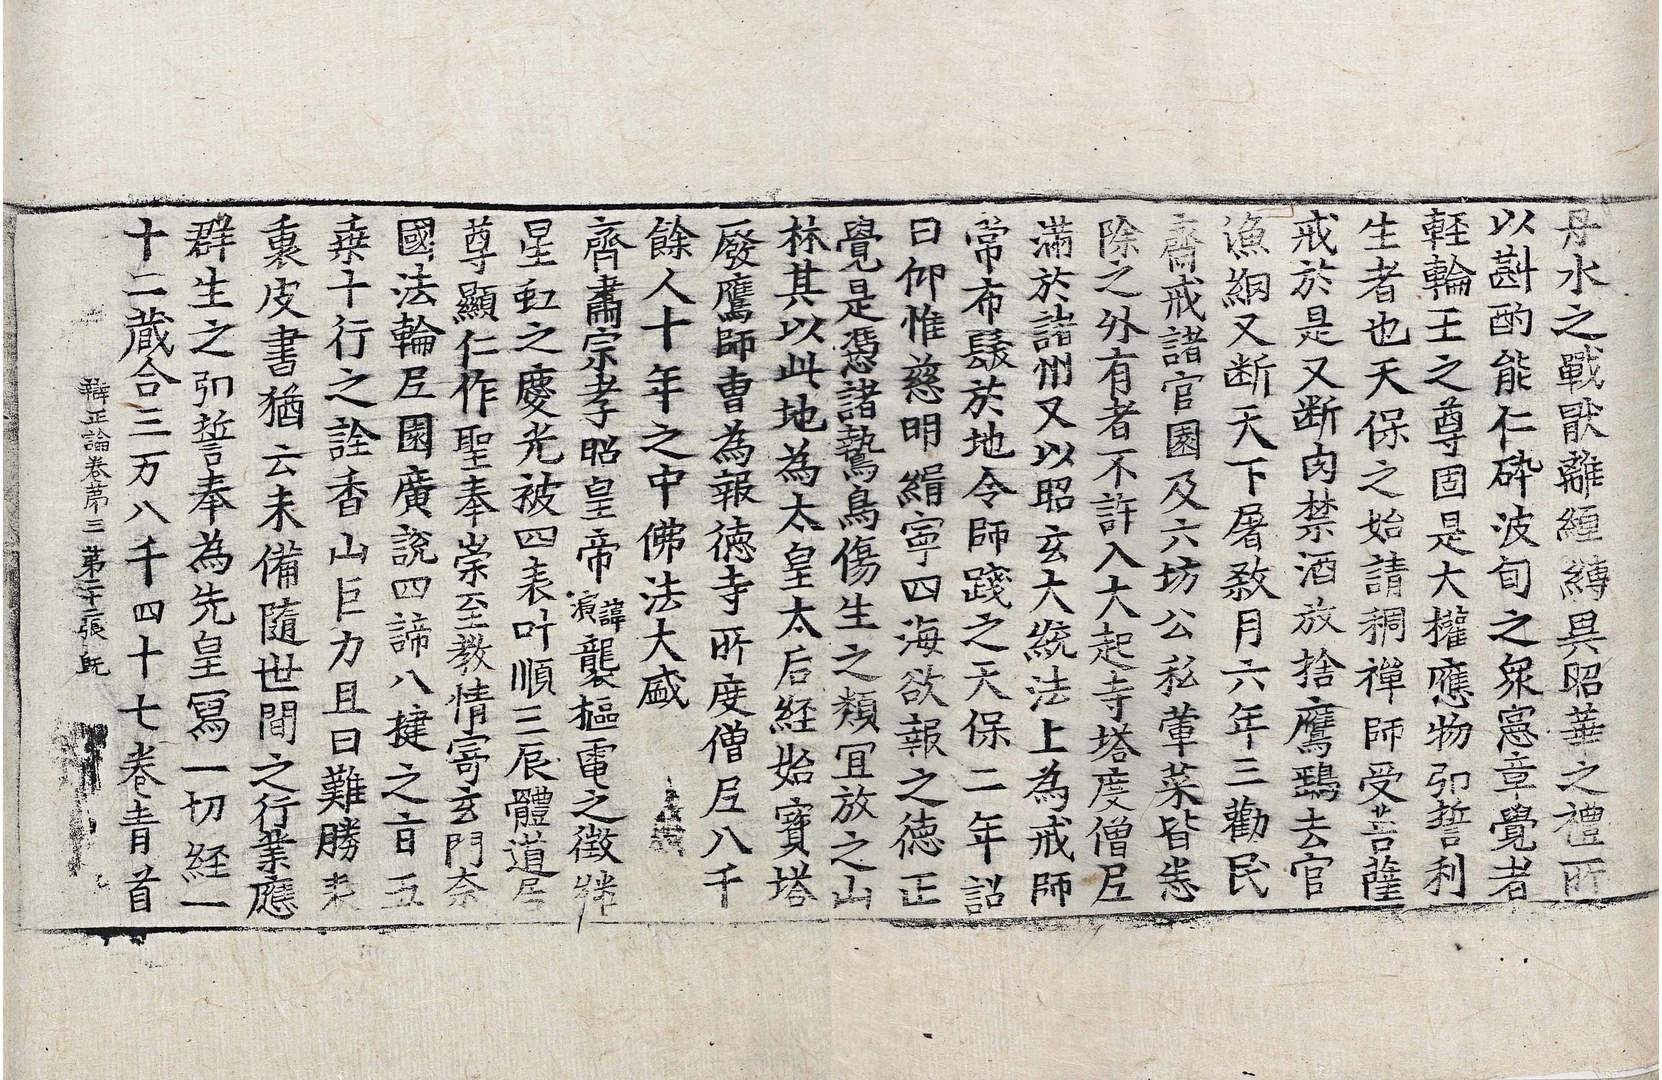 丹水之戰猒離纏縛異昭華之禮所
以斟酌能仁碎波旬之衆憲章覺者
輊輪王之尊固是大權應物弘誓利
生者也天保之始請稠禪師受菩薩
戒於是又断肉禁酒放捨鷹鷂去官
漁網又断天下屠敎月六年三勸民
齋戒諸官園及六坊公私葷菜皆悉
除之外有者不許入大起寺塔度僧尼
滿於諸州又以昭玄大統法上為戒師
常布䯻於地令師踐之天保二年詔
曰仰惟慈明緝寧四海欲報之德正
覺是憑諸鷙鳥傷生之類冝放之山
林其以此地為太皇太后経始寶塔
廢鷹師曺為報徳寺所度僧尼八千
餘人十年之中佛法大盛
齊肅宗孝昭皇帝諱演襲樞電之徵
星虹之慶光被四表叶順三辰體道居
尊顯仁作聖奉崇至教情寄玄門奈
國法輪尼園廣說四諦八揵之言五
乗十行之詮香山巨力且曰難勝
裏皮書猶云未備隨世間之行業應
群生之弘誓奉為先皇冩一切経一
十二蔵合三万八千四十七巻青首
辯正論卷苐三 苐二十張